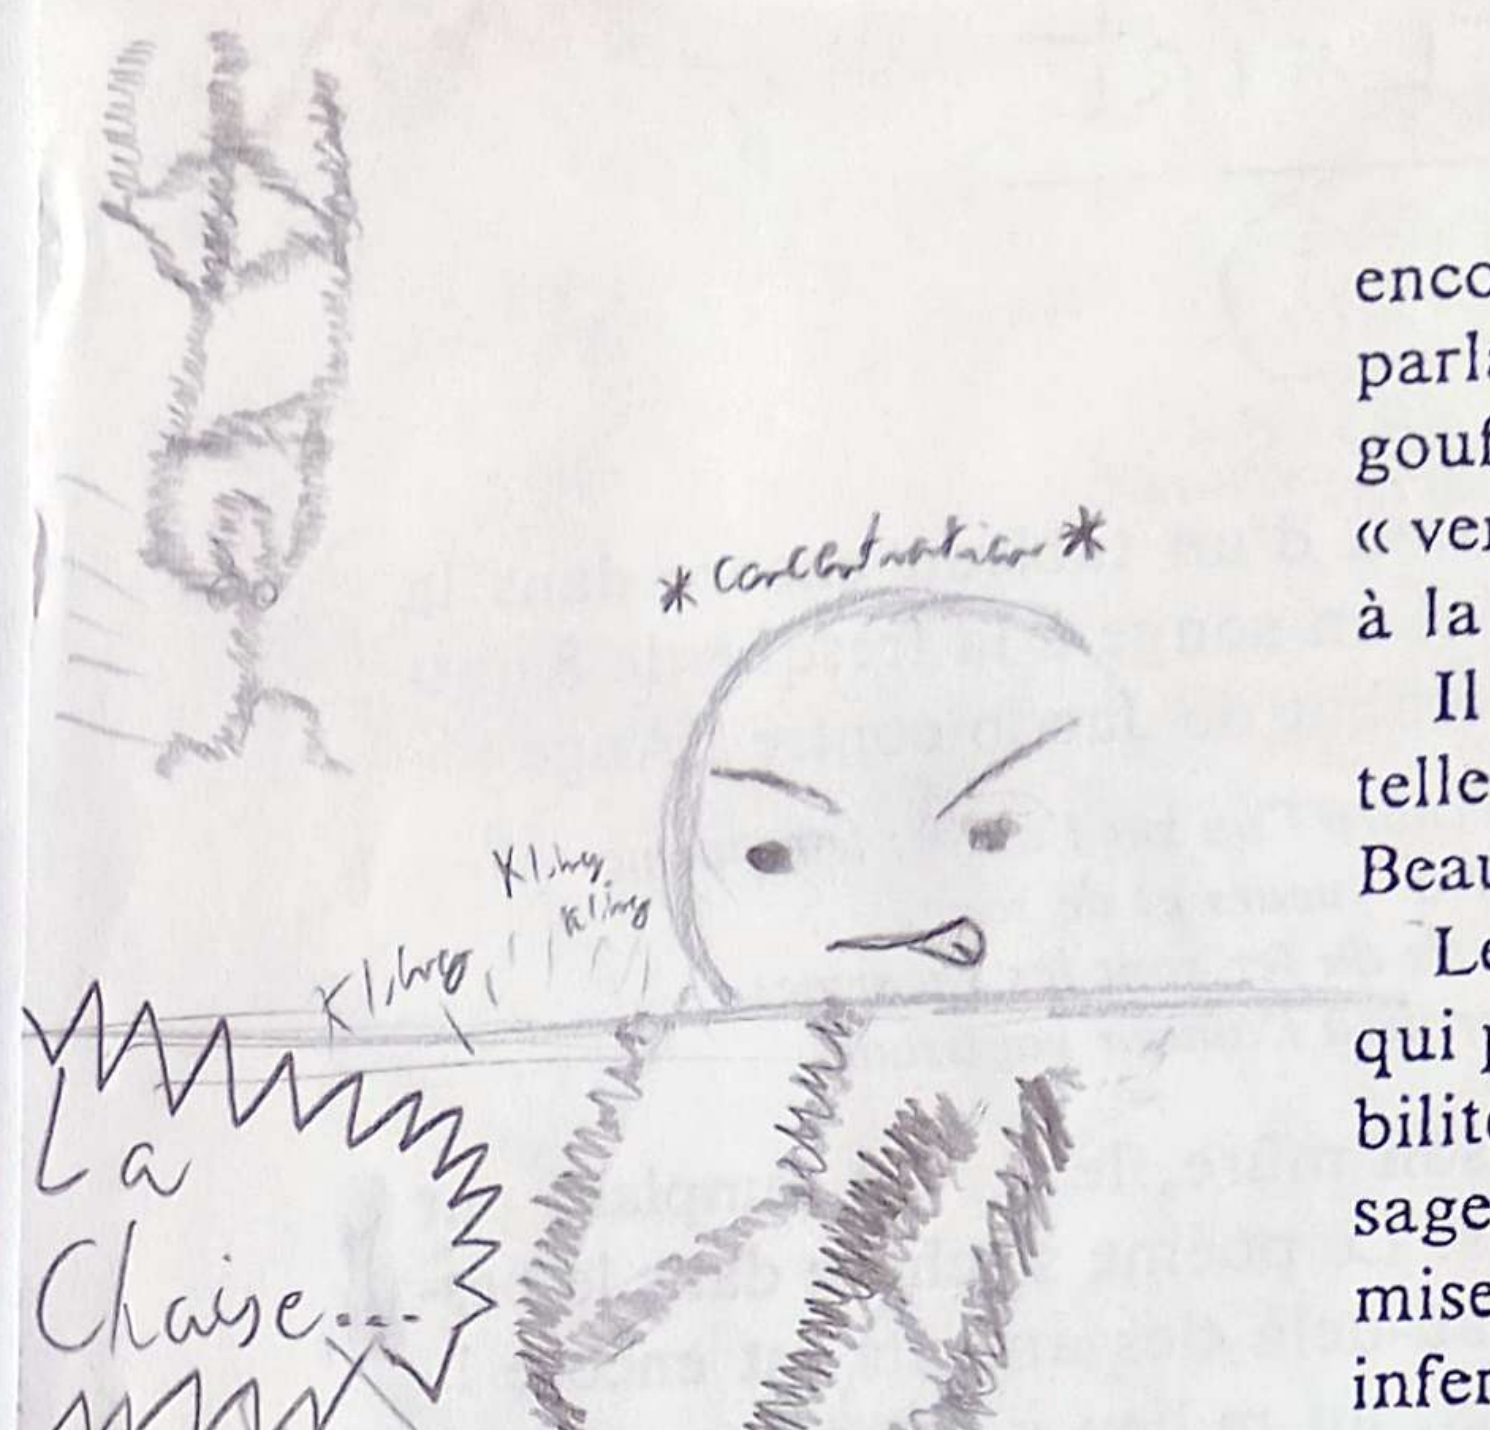 * concentration *
Kling
kling
Kling
La
Chaise...
enco
parla
gouf
« ver
à la
Il
telle
Beau
Le
qui p
bilité
sage
mise
infer